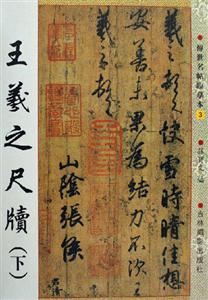 王羲之尺牘
(下)
羲之頓首快雪時晴佳想
安善未果為結力不次王
羲之頓首
山陰張侯
君倩
傳世名帖臨摹本
3
吉林攝影出版社